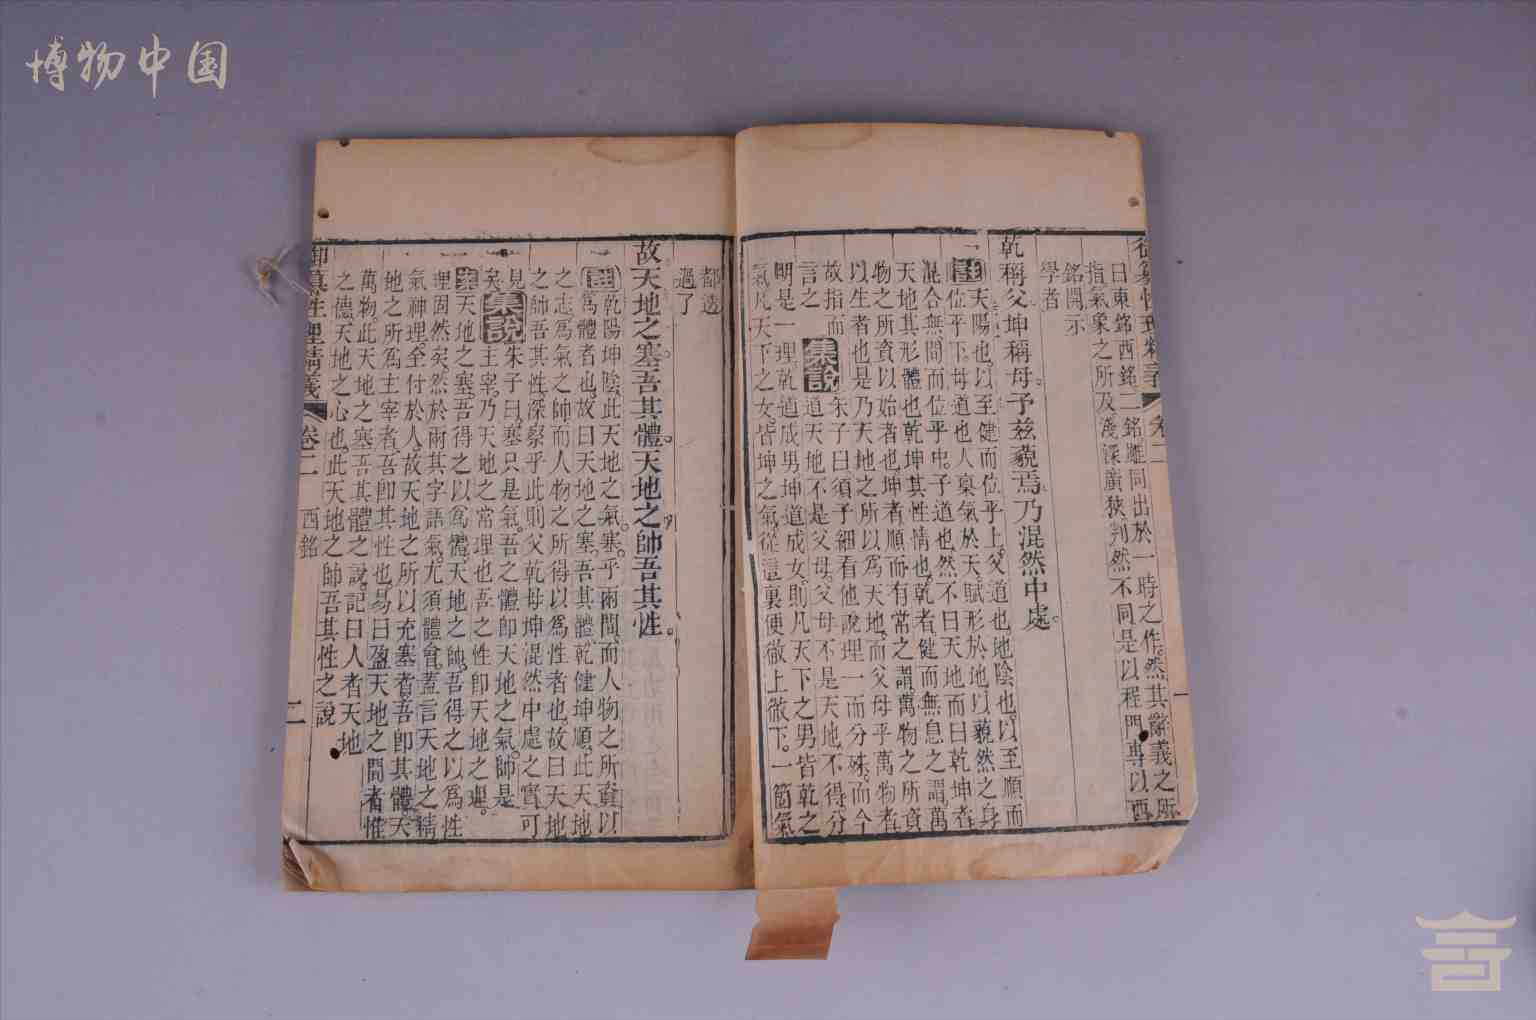 博物中国
御纂性理精義 卷二 一
曰東銘西銘二銘雖同出於一時之作。然其辭義之所
指氣象之所及淺深廣狹判然不同是以程門專以西
銘開示
學者
乾稱父坤稱母。予茲藐焉乃混然中處。
註天陽也以至健而位乎上。父道也地陰也以至順而
位乎下。母道也人稟氣於天。賦形於地以藐然之身
混合無間而位乎中。子道也然不曰天地而曰乾坤者
天地其形體也乾坤其性情也。乾者健而無息之謂萬
物之所資以始者也坤者順而有常之謂萬物之所資
以生者也是乃天地之所以爲天地。而父母乎萬物者
故指而
言之
集說朱子曰須子細看他說理一而分殊。而今
道天地不是父母。父母不是天地。不得分
明是一理乾道成男坤道成女。則凡天下之男皆乾之
氣。凡天下之女。皆坤之氣。從這裏便徹上徹下。一箇氣
都透
過了
故天地之塞。吾其體。天地之帥吾其性。
註乾陽坤陰此天地之氣。塞乎兩間。而人物之所資以
爲體者也。故曰天地之塞。吾其體。乾健坤順。此天地
之志爲氣之帥。而人物之所得以爲性者也。故曰天地
之帥吾其性。深察乎此則父乾母坤混然中處之實可
見
矣。
集說朱子曰。塞只是氣。吾之體即天地之氣。帥是
主宰。乃天地之常理也吾之性即天地之理。
案天地之塞。吾得之以爲體。天地之帥。吾得之以爲性
理固然矣。然於兩其字語氣。尤須體會。蓋言天地之精
氣神理。全付於人。故天地之所以充塞者。吾即其體。天
地之所爲主宰者。吾即其性也。易曰盈天地之間者惟
萬物。此天地之塞吾其體之說。記曰人者天地
之德。天地之心也。此天地之帥吾其性之說。
御纂性理精義 卷二 西銘 二